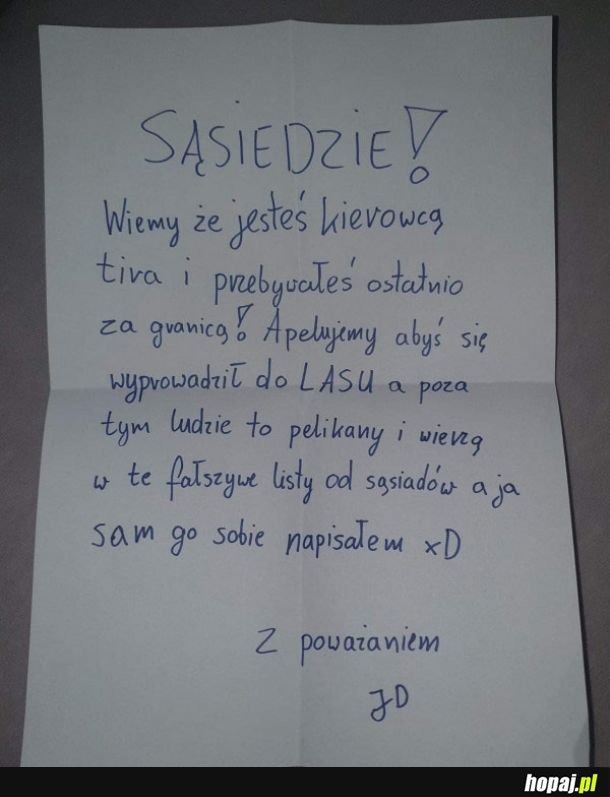 SĄSIEDZIE!
Wiemy że jesteś kierowcą
tira i przebywałeś ostatnio
za granicą! Apelujemy abyś się
wyprowadził do LASU a poza
tym ludzie to pelikany i wierzą
w te fałszywe listy od sąsiadów a ja
sam go sobie napisałem xD
Z poważaniem
JD
hopaj.pl